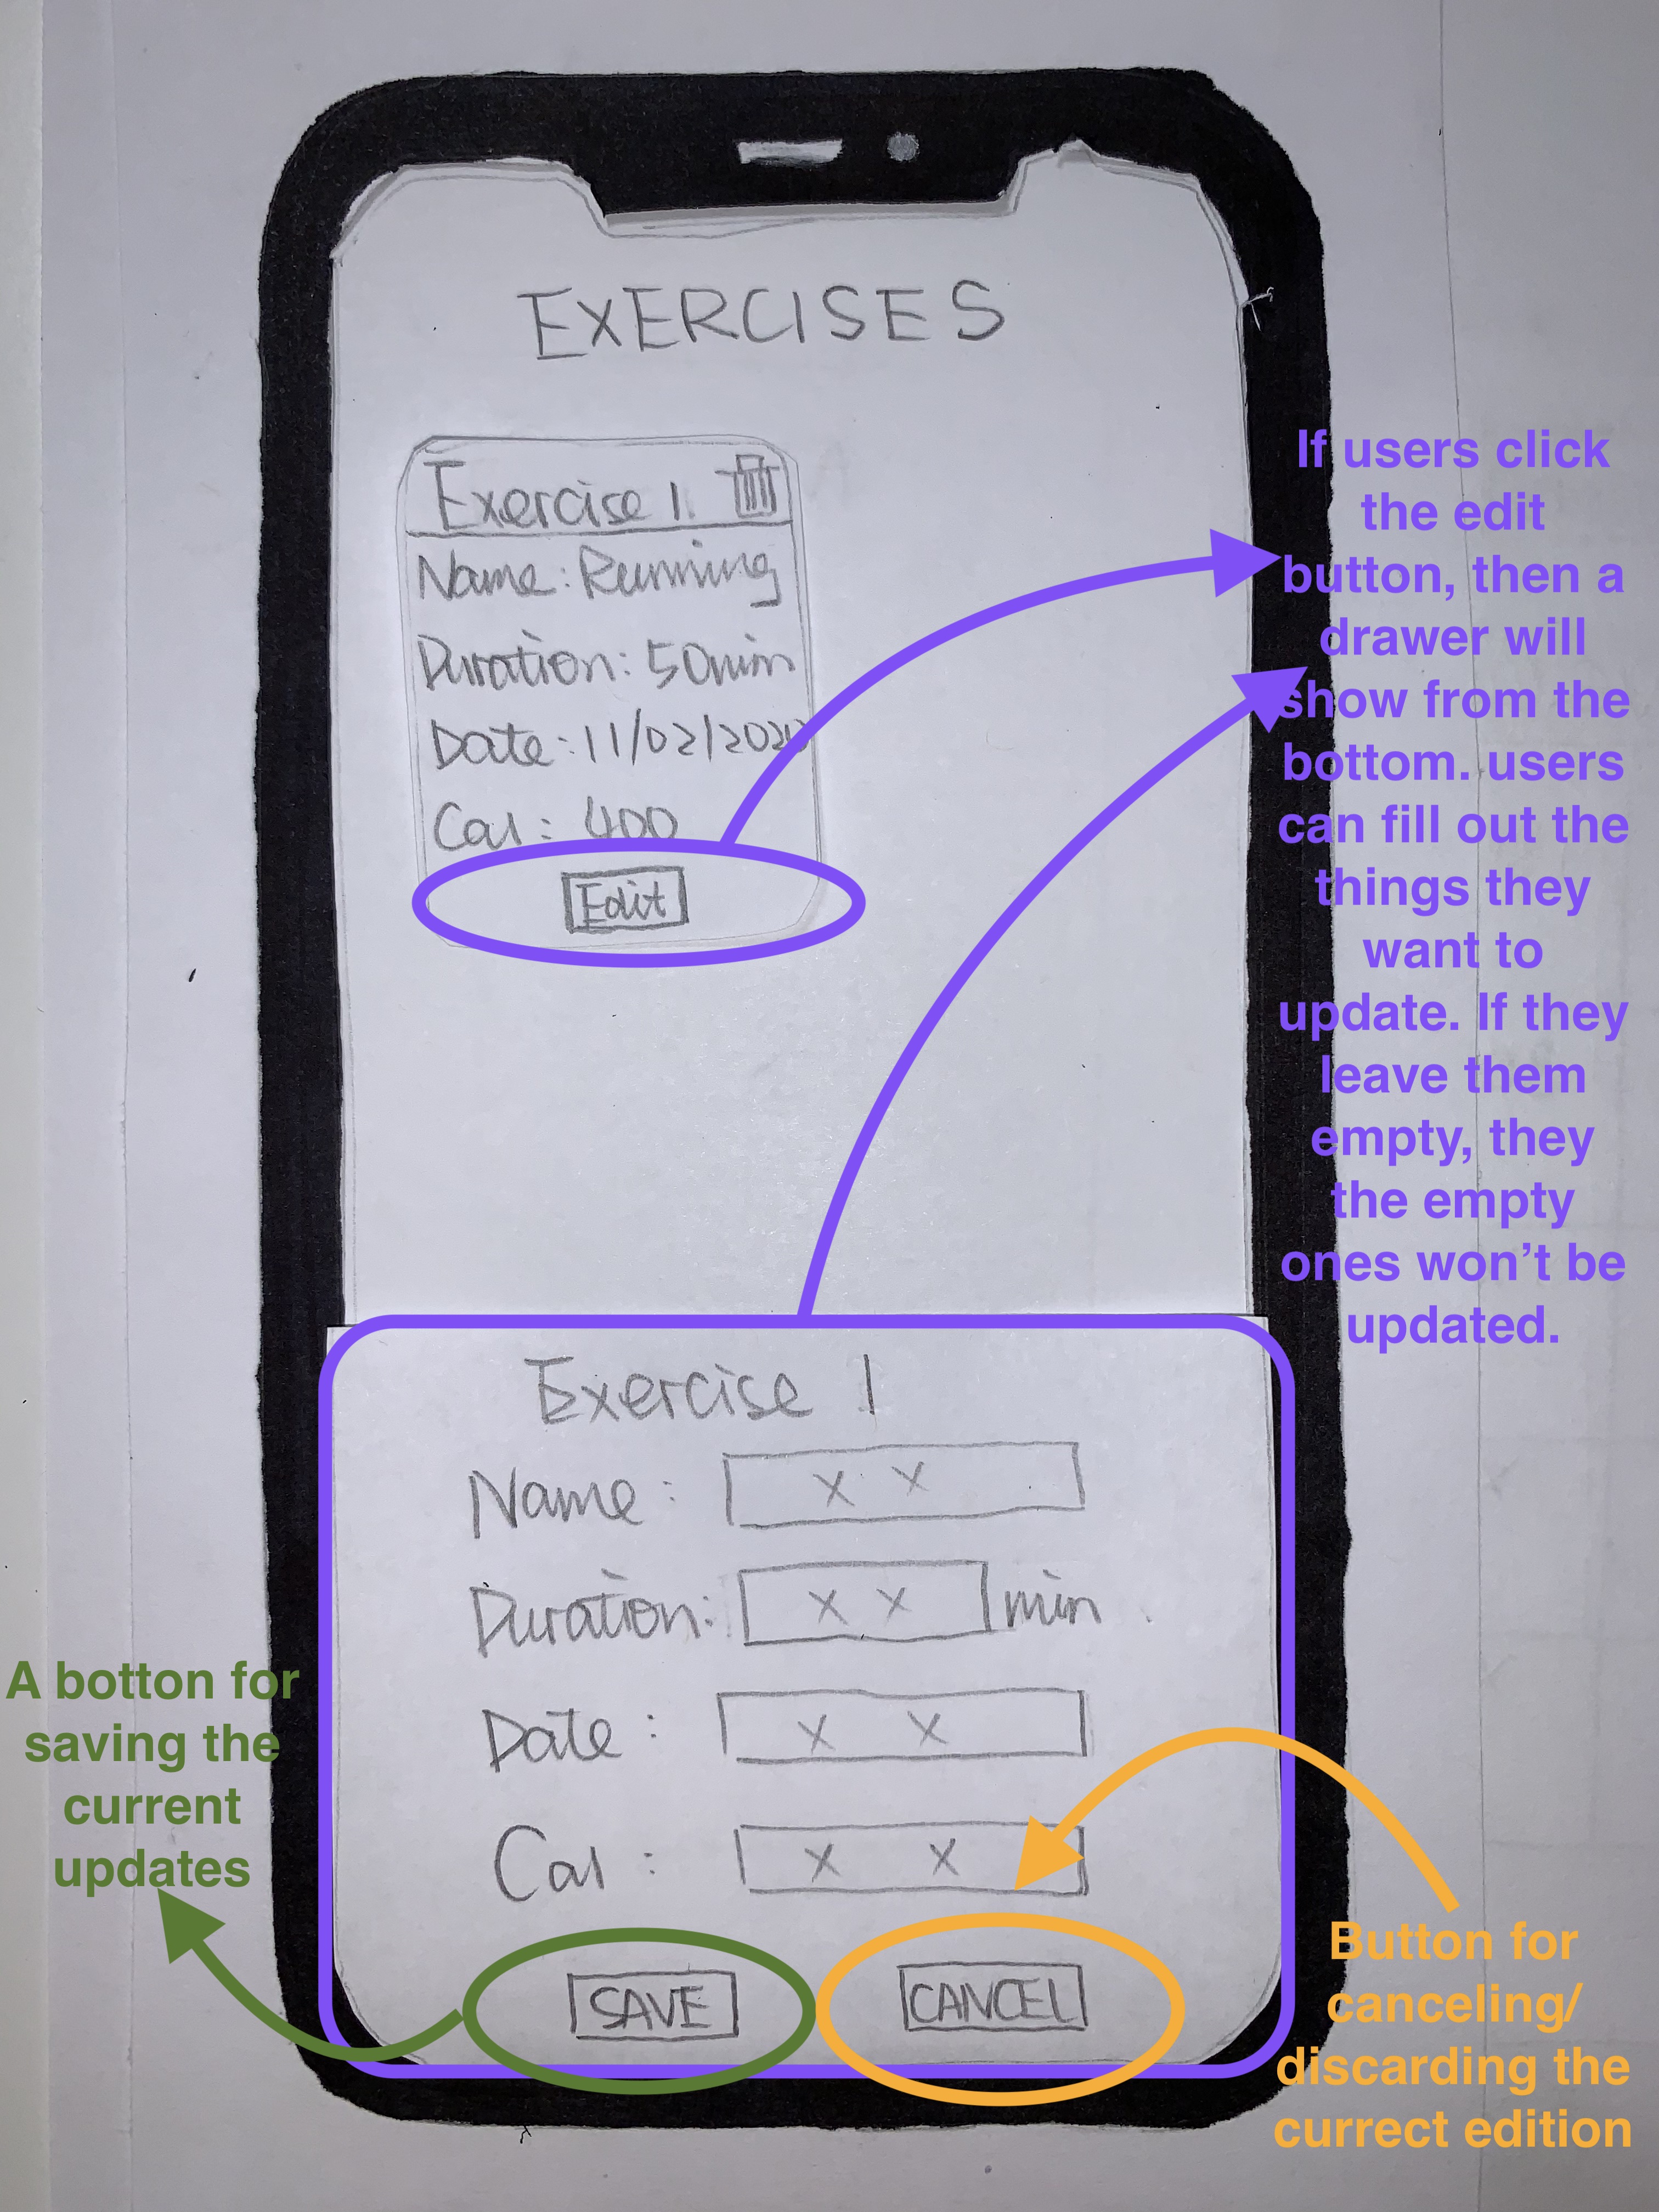 EXERCISES
Exercise 1
Name: Running
Duration: 50min
Date: 11/02/2020
Cal: 400
Edit
If users click
the edit
button, then a
drawer will
show from the
bottom. users
can fill out the
things they
want to
update. If they
leave them
empty, they
the empty
ones won’t be
updated.
Exercise 1
Name: X X
Duration: X X min
Date: X X
Cal: X X
SAVE
CANCEL
A botton for
saving the
current
updates
Button for
canceling/
discarding the
currect edition